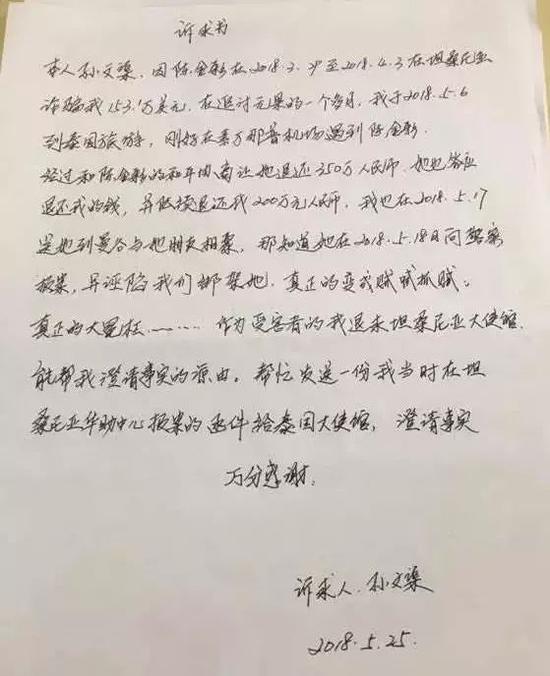 诉求书
本人孙文渠,因陈金彩在2018.3.29至2018.4.3在坦桑尼亚
诈骗我153.1万美元.在追讨无果的一个多月,我于2018.5.6
到泰国旅游,刚好在素万那普机场遇到陈金彩.
经过和陈金彩的和平协商让她退还350万人民币.她也答应
退还我的钱,并陆续退还我200万元人民币,我也在2018.5.17
送她到曼谷与她朋友相聚,那知道她在2018.5.18日向警察
报案,并诬陷我们绑架她.真正的变成贼喊抓贼。
真正的大冤枉……作为受害者的我恳求坦桑尼亚大使馆.
能帮我澄清事实的源由。帮忙发送一份我当时在坦
桑尼亚华助中心报案的函件给泰国大使馆,澄清事实
万分感谢.
诉求人.孙文渠
2018.5.25.